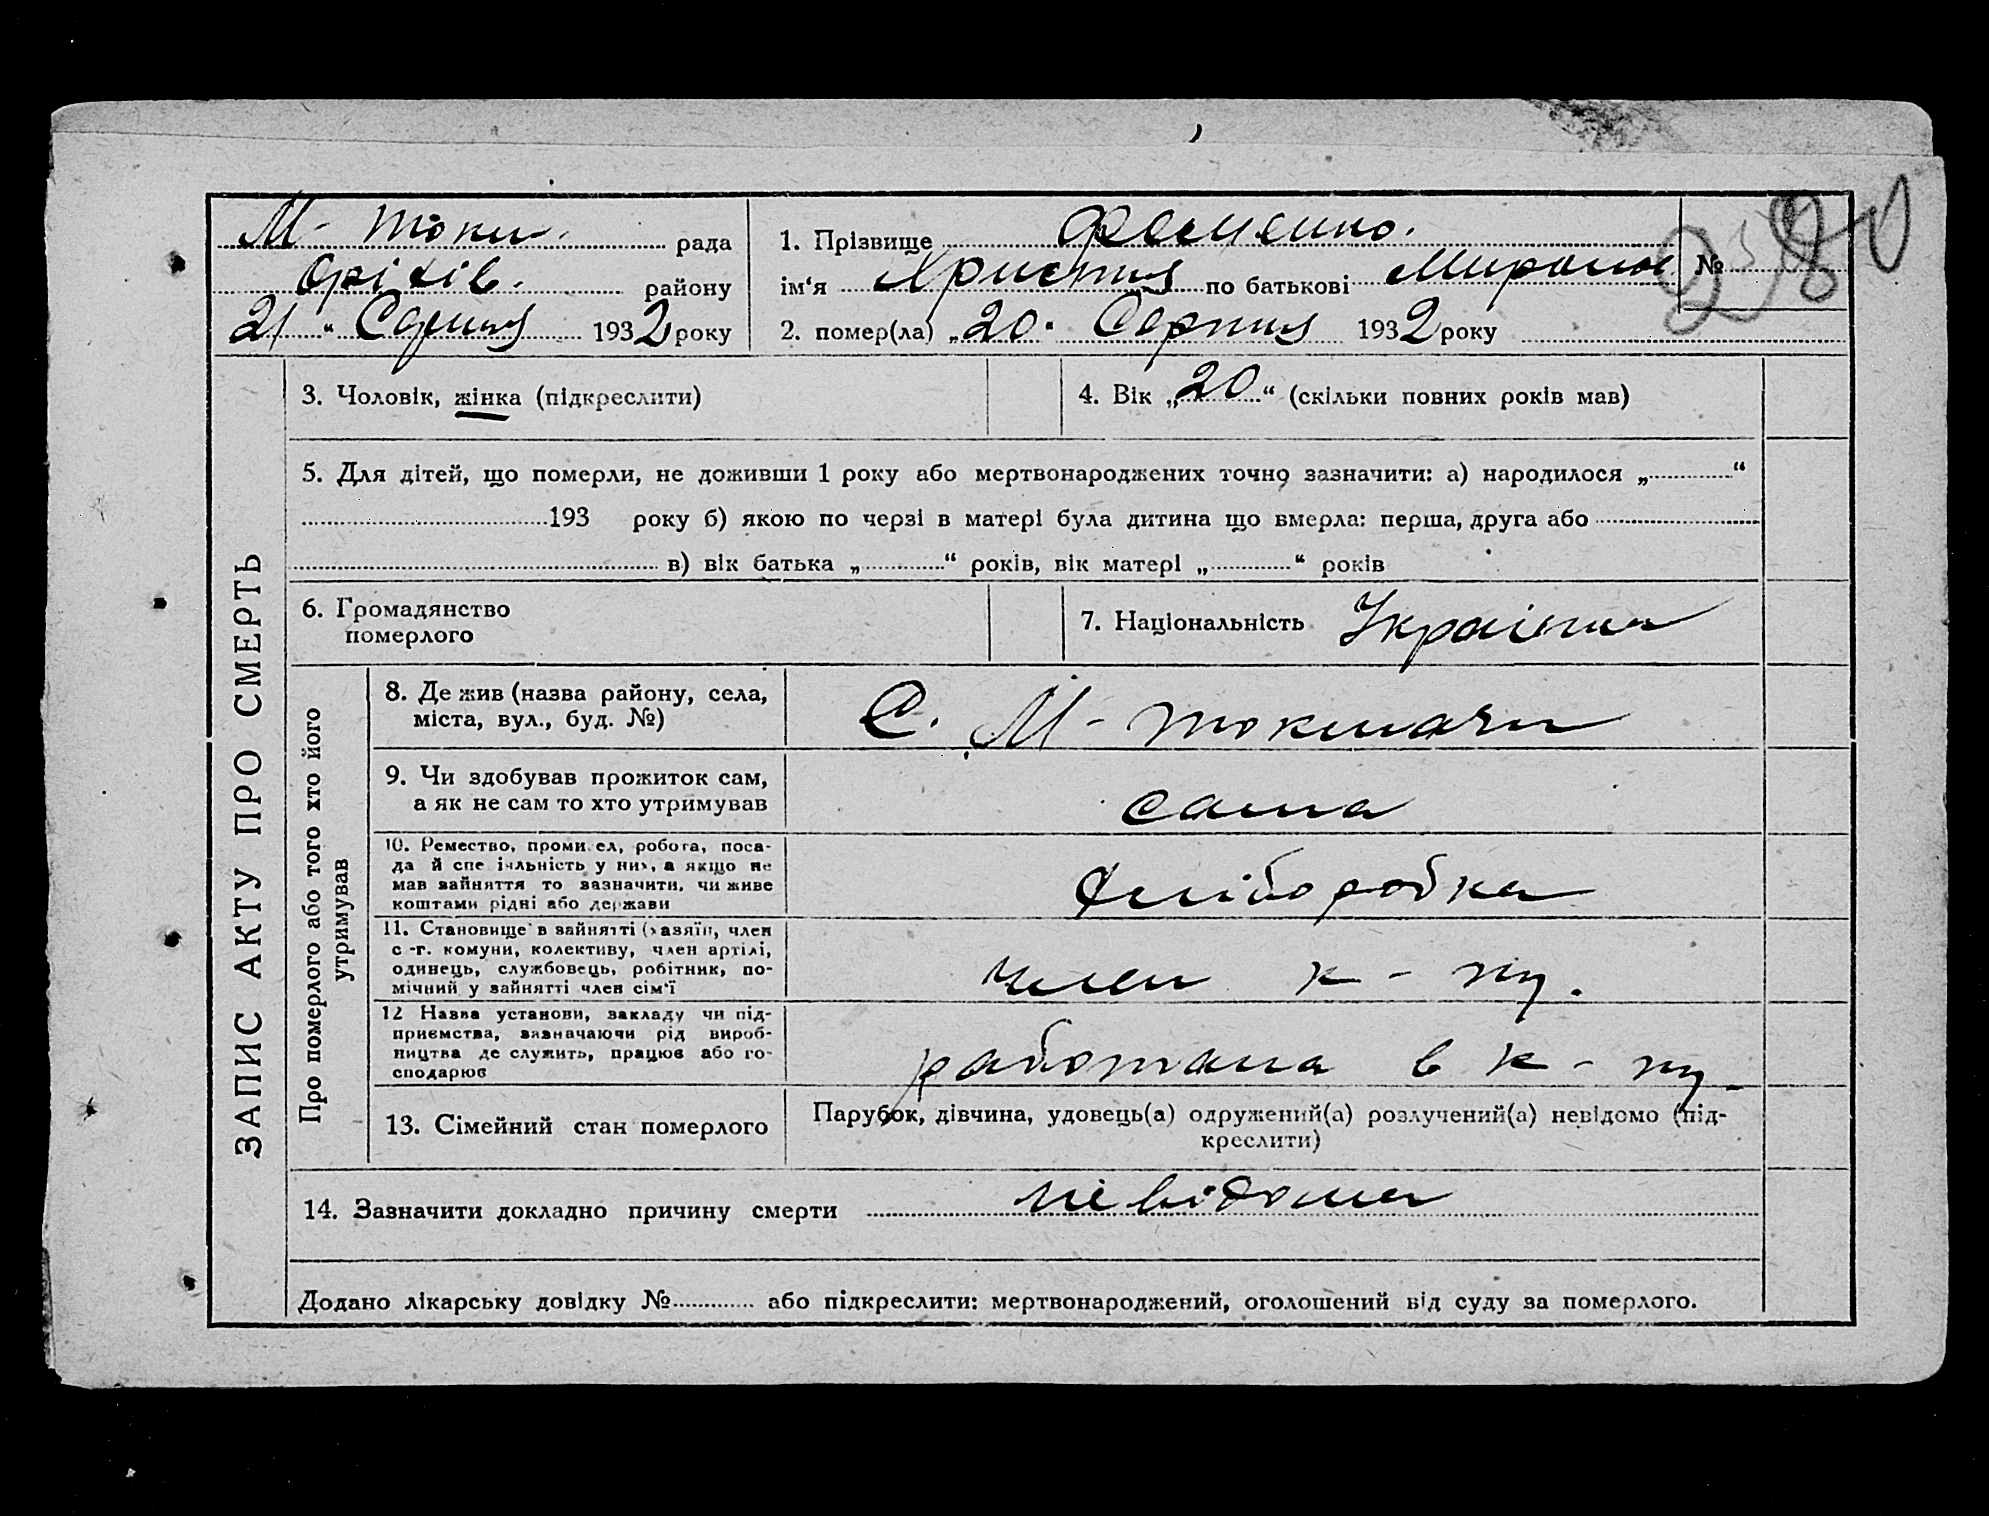 М- токм. рада
Оріхів. району
21 " Серпня 1932 року
1. Прізвище Фесченко.
ім'я Христя по батькові Мирон
№
2. помер(ла) „20" Серпня 1932 року
ЗАПИС АКТУ ПРО СМЕРТЬ
3. Чоловік, жінка (підкреслити)
4. Вік „20“ (скільки повних років мав)
5. Для дітей, що померли, не доживши 1 року або мертвонароджених точно зазначити: а) народилося „ “
193 року б) якою по черзі в матері була дитина що вмерла: перша, друга або
в) вік батька „ “ років, вік матері „ “ років
6. Громадянство
померлого
7. Національність Україика
Про померлого або того хто його
утримував
8. Де жив (назва району, села,
міста, вул., буд. №)
С. М- токмачи
9. Чи здобував прожиток сам,
а як не сам то хто утримував
сама
10. Ремество, промисел, робота, поса-
да й спеціяльність у них, а якщо не
мав зайняття то зазначити, чи живе
коштами рідні або держави
Хліборобка
11. Становище в зайнятті (хазяїн, член
с.-г. комуни, колективу, член артілі,
одинець, службовець, робітник, по-
мічний у зайнятті член сім'ї
член к-пу.
12 Назва установи, закладу чи під-
приємства, зазначаючи рід вироб-
ництва де служить, працює або го-
сподарює
работала в к-пу
13. Сімейний стан померлого
Парубок, дівчина, удовець(а) одружений(а) розлучений(а) невідомо (під-
креслити)
14. Зазначити докладно причину смерти невідома
Додано лікарську довідку № або підкреслити: мертвонароджений, оголошений від суду за померлого.